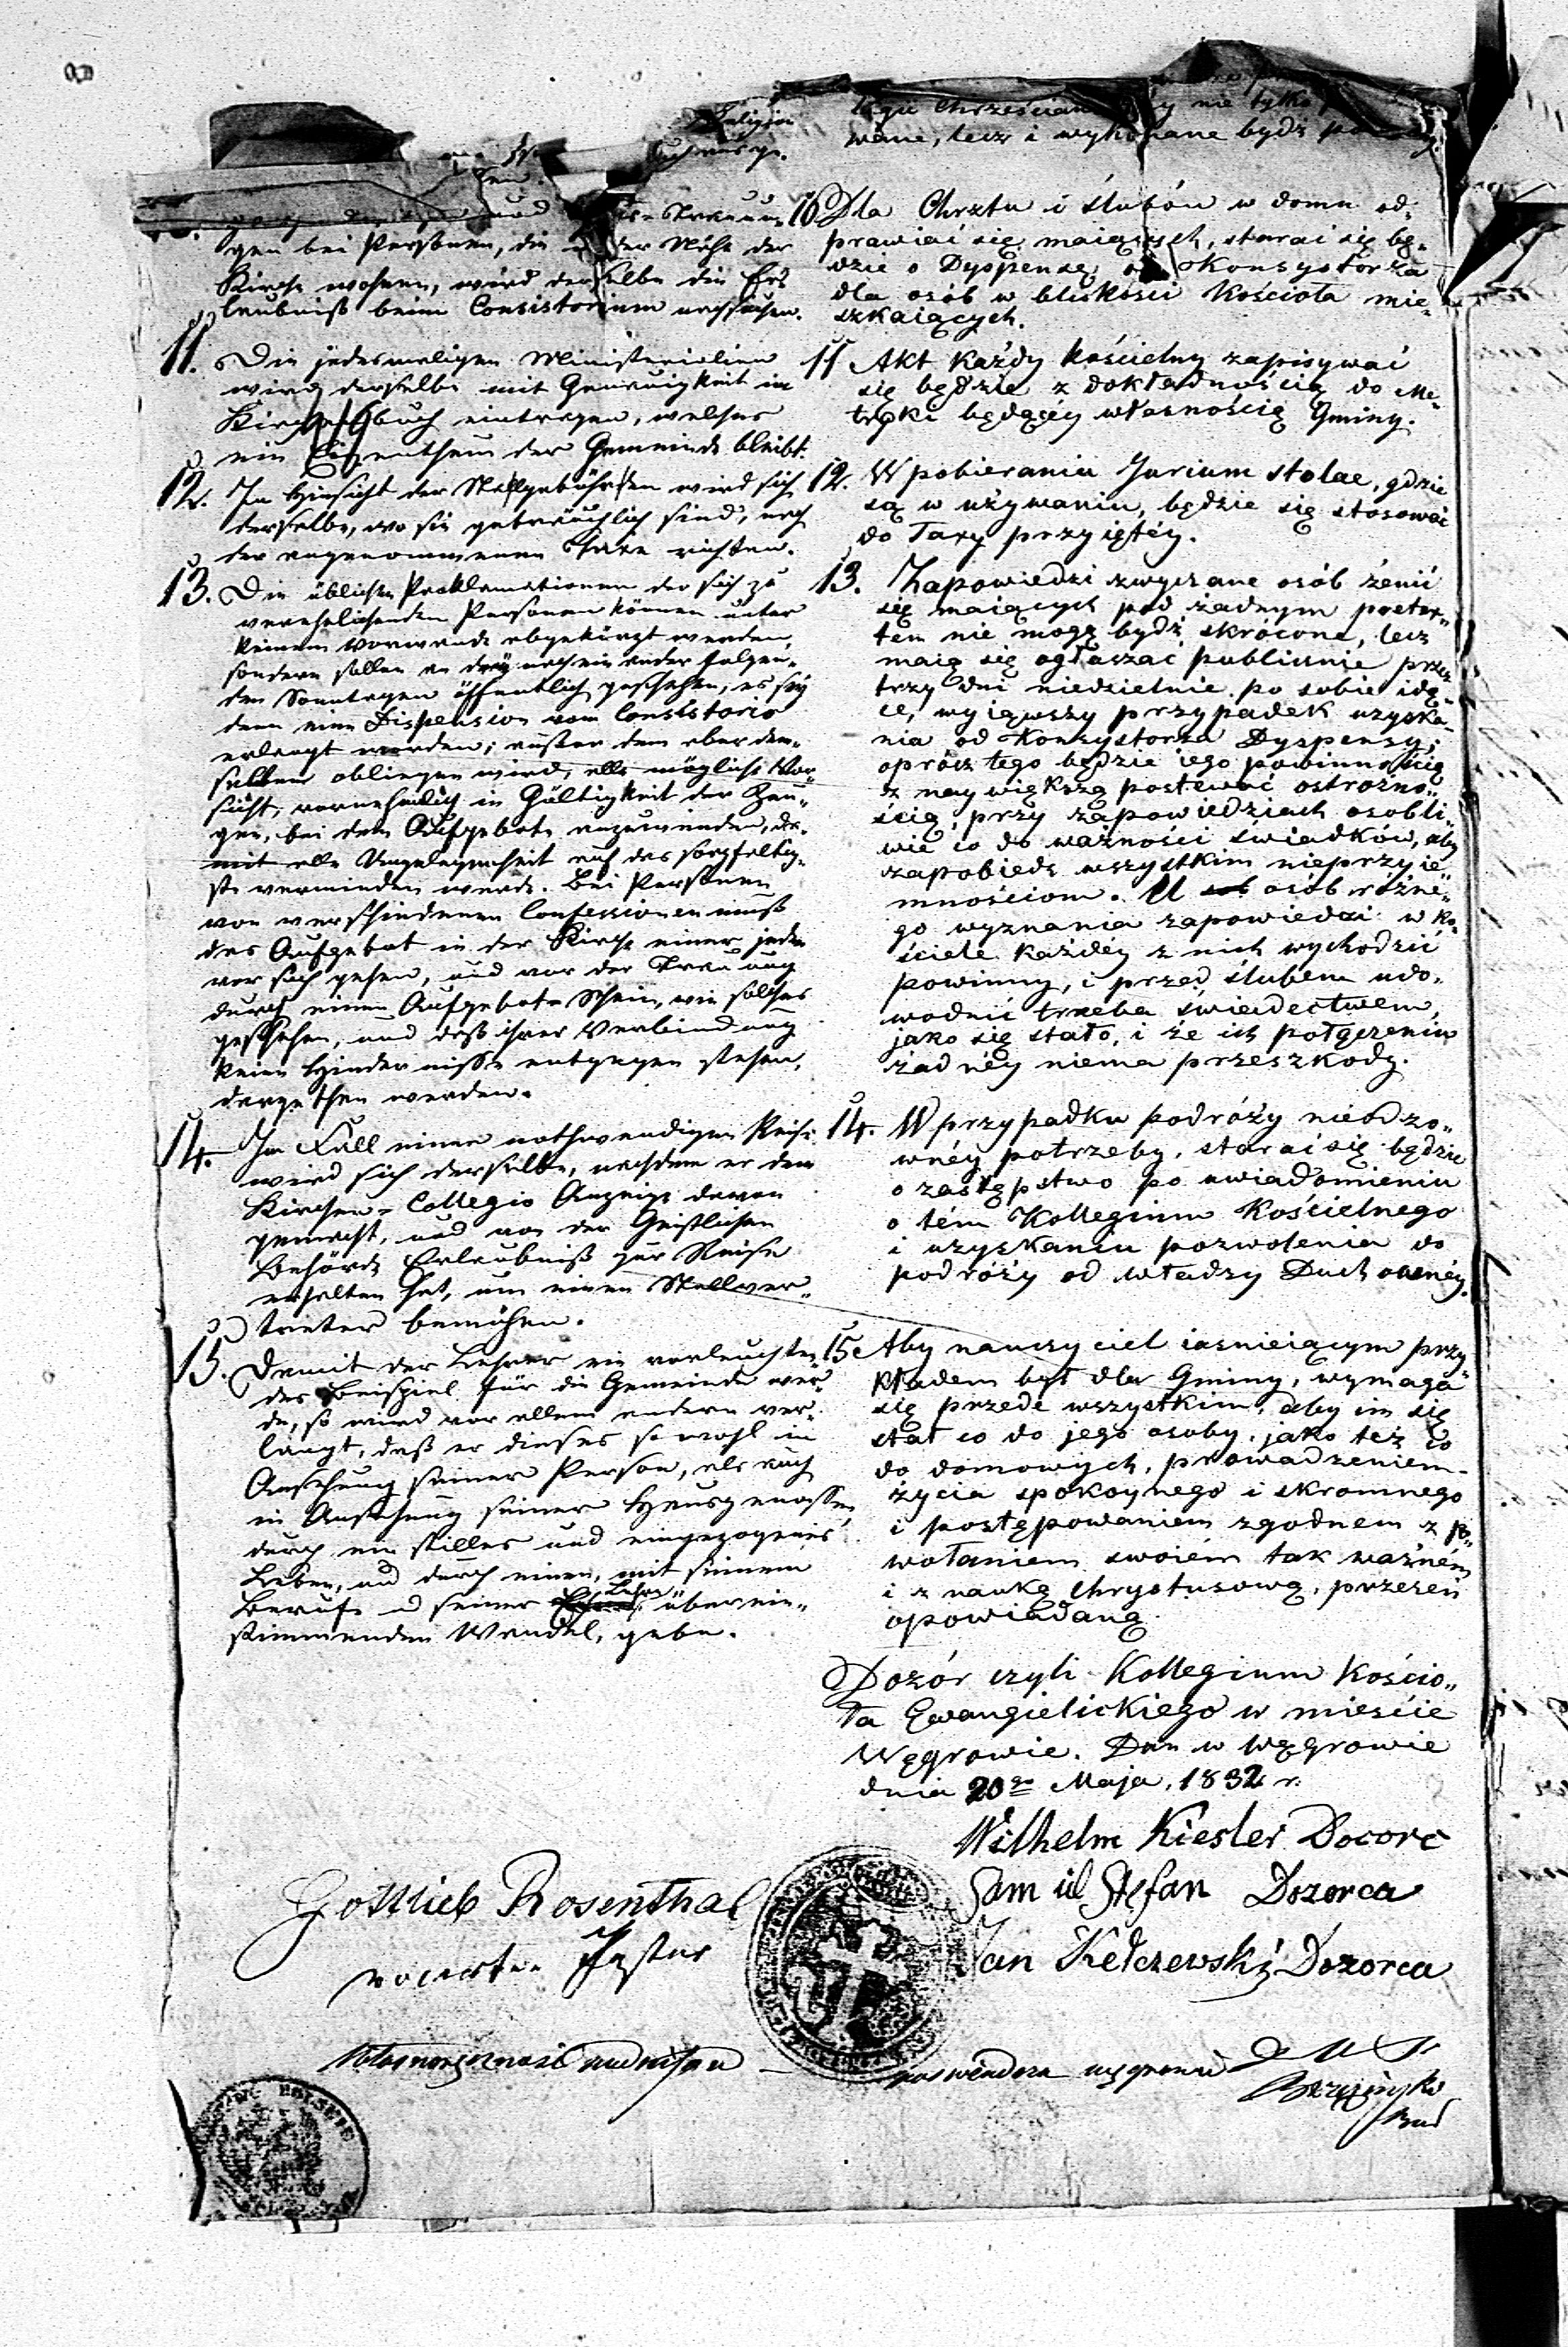 Religion
10. und Trauun-
gen bei Personen, die in der Nähe der
Kirche wohnen, wird derselbe die Er-
laubniß beim Consistorium nachsuchen.
11. Die jedesmaligen Ministerialien
wird derselbe mit Genauigkeit im
Kirchenbuch eintragen, welches
ein Eigenthum der Gemeinde bleibt.
12. In Hinsicht der Stollgebühren wird sich
derselbe, wo sie gebräuchlich sind, nach
der angenommenen Taxe richten.
13. Die üblichen Proklamationen der sich zu
verehelichenden Personen können unter
keinem Vorwande abgekürzt werden,
sondern sollen an drey nach ein ander folgen-
den Sonntagen öffentlich geschehen, es sey
denn eine Dispension vom Consistorio
erlangt worden; außer dem aber dem-
selben obliegen wird, alle mögliche Vor-
sicht, vornehmlich in Gültigkeit der Zeu-
gen, bei dem Aufgebote anzuwenden, da-
mit alle Ungelegenheit auf das sorgfältig-
ste vermieden werde. Bei Personen
von verschiedenen Confessionen muß
das Aufgebot in der Kirche einer jeden
vor sich gehen, und vor der Trauung
durch einen Aufgebots Schein, wie solches
geschehen, und daß ihrer Verbindung
keine Hindernisse entgegen stehen,
dargethan werden.
14. Im Fall einer nothwendigen Reise
wird sich derselbe, nachdem er dem
Kirchen-Collegio Anzeige davon
gemacht, und von der Geistlichen
Behörde Erlaubniß zur Reise
erhalten hat, um einen Stellver-
treter bemühen.
15. Damit der Lehrer ein vorleuchten-
des Beispiel für die Gemeinde wer-
de, so wird vor allem andern ver-
langt, daß er dieses sowohl in
Ansehung seiner Person, als auch
in Ansehung seiner Hausgenossen,
durch ein stilles und eingezogenes
Leben, und durch einen, mit seinem
Berufe u seiner Lehre überein-
stimmenden Wandel, gebe.
tego Chrześcian nie tylko
wane, lecz i wykonane bydź
10 Dla Chrztu i ślubów w domu od-
prawiać się maiących, starać się bę-
dzie o Dyspensę od Konsystorza
dla osób w bliskości Kościoła mie-
szkaiących.
11 Akt każdy kościelny zapisywać
się będzie z dokładnością do Me-
tryki będącéy własnością Gminy.
12. W pobieraniu Jurium stolae, gdzie
są w używaniu, będzie się stosować
do Taxy przyiętéy.
13. Zapowiedzi zwyczane osób żenić
się maiących pod żadnym pretex-
tem nie mogą bydź skrócone, lecz
maią się ogłaszać publicznie przez
trzy dni niedzielnie po sobie idą-
ce, wyiąwszy przypadek uzyska-
nia od Konsystorza Dyspensy;
oprócz tego będzie iego powinnością
z naywiększą postewać ostrożno-
ścią, przy zapowiedziach osobli-
wie co do ważności świadków, aby
zapobiedz wszystkim nieprzyie-
mnościom. U osób różne-
go wyznania zapowiedzi w ko-
ściele każdéy z nich wychodzić
powinny, i przed ślubem udo-
wodnić trzeba świadectwem,
jako się stało, i że ich połączeniu
żadnéy niema przeszkody.
14. W przypadku podróży nieodzo-
wnéy potrzeby, starać się będzie
o zastępstwo po uwiadomieniu
o tém Kollegium Kościelnego
i uzyskaniu pozwolenia do
podróży od władzy Duchownéy.
15 Aby nauczyciel iaśnieiącym przy-
kładem był dla Gminy, wymaga
się przede wszystkim, aby im się
stał co do jego osoby, jako też co
do domowych, prowadzeniem
życia spokoynego i skromnego
i postępowaniem zgodnem z po-
wołaniem swoiém tak ważném
i z nauką Chrystusową, przezeń
opowiadaną.
Dozór czyli Kollegium Kościo-
ła Ewangielickiego w mieście
Węgrowie. Dan w Węgrowie
dnia 20go Maja, 1832 r.
Wilhelm Kiesler Docorc
Samuel Stefan Dozorca
Jan Kełczewski Dozorca
Gottlieb Rosenthal
vocirter Pastor
Własnoręczność podpisów poswiadcza